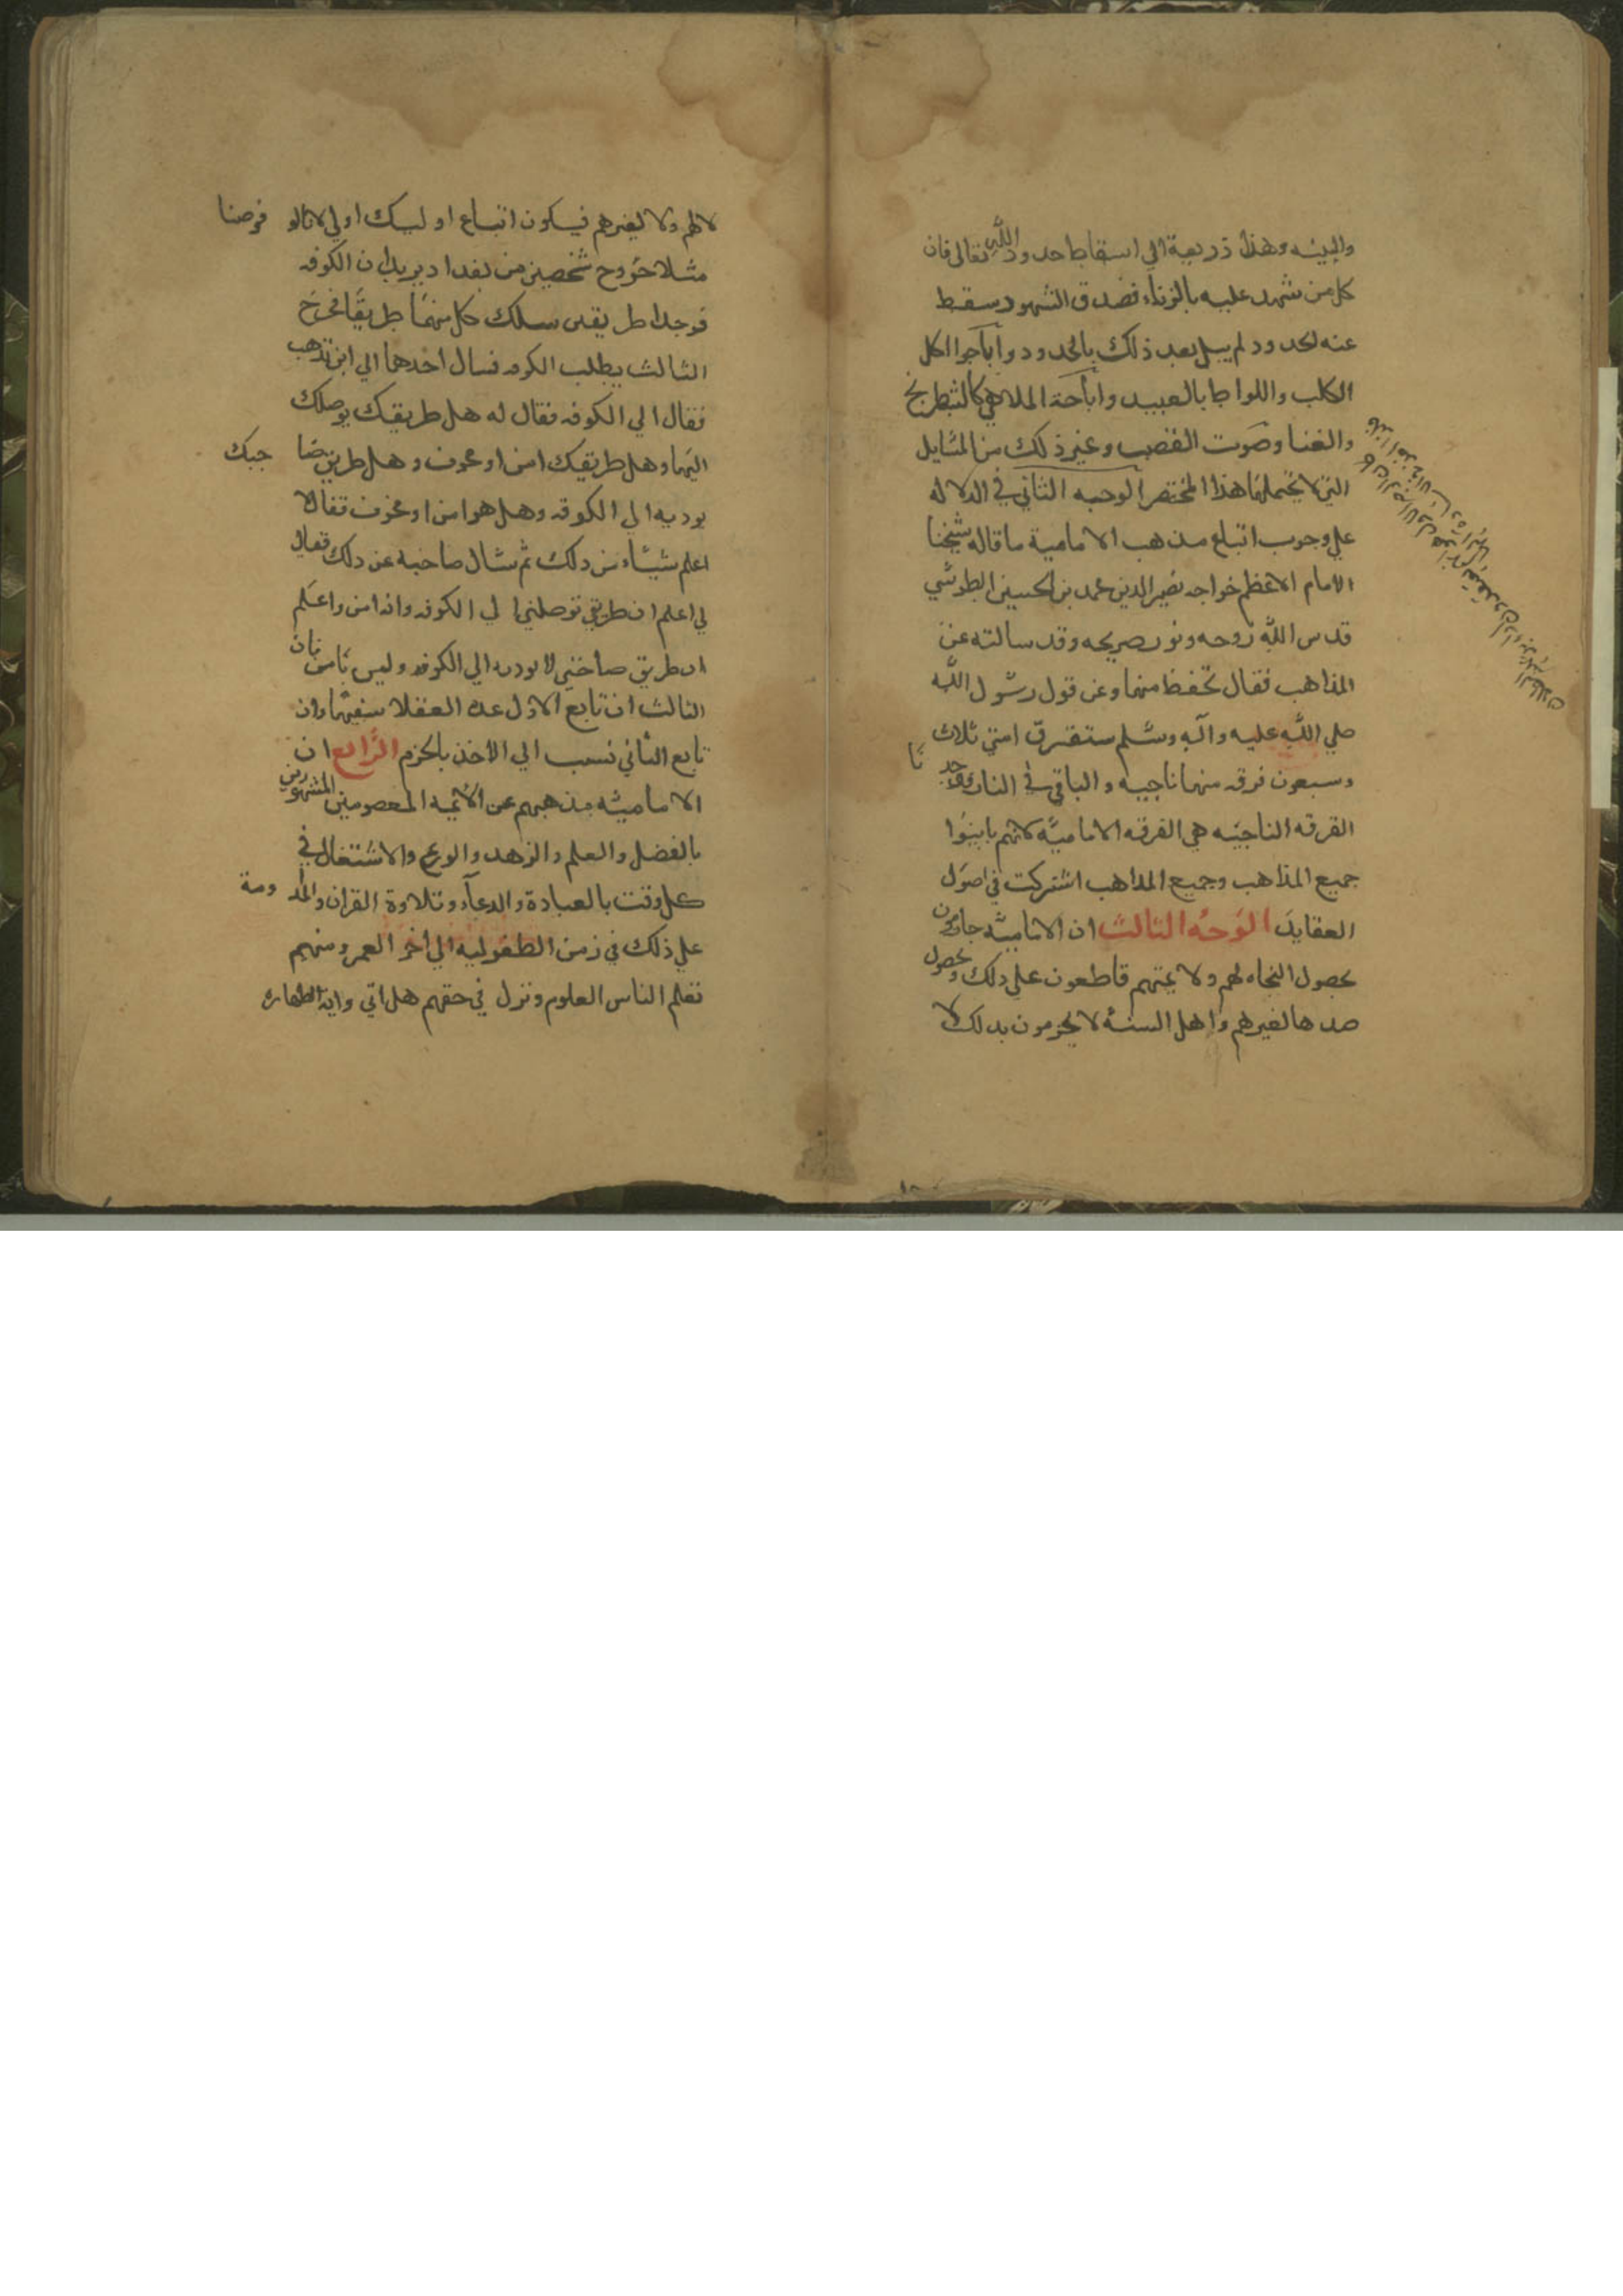 والبينه وهذا ذريعة الي اسقاط حدود الله تعالى فان
كل من شهد عليه بالزناء فصدق الشهود سقط
عنه لحدود لم يبل بعد ذلك بالحدود و اباحوا اكل
الكلب واللواط بالعبيد واباحة الملاهي كالشطرنج
والغنا وصوت القصب وغير ذلك من المسايل
التي لا يحتملها هذا المختصر الوجه الثاني في الدلاله
علي وجوب اتباع مذهب الامامية ما قاله شيخنا
الامام الاعظم خواجه نصير الدين محمد بن الحسين الطوسي
قدس الله روحه ونور ضريحه وقد سالته عن
المذاهب فقال تحفظ منها وعن قول رسول الله
صلي الله عليه وآله وسلم ستفرق امتي ثلاث
وسبعون فرقه منها ناجيه و الباقي في النار
القرقه الناجيه هي الفرقه الاماميه لانهم باينوا
جميع المذاهب وجميع المذاهب اشتركت في اصول
العقايد الوجه الثالث ان الاماميه جازمون
بحصول النجاه لهم ولايمتهم قاطعون على ذلك و بحصول
ضدها لغيرهم واهل السنه لا يجزمون بذلك لا
لالهم ولا لغيرهم فيكون اتباع اوليك اولي لانا لو فرضنا
مثلا خروج شخصين من بغداد يريدان الكوفه
فوجدا طريقين سلك كل منهما طريقا فخرج
الثالث يطلب الكوفه فسال احدهما الي اين تذهب
فقال الي الكوفه فقال له هل طريقك يوصلك
اليها وهل طريقك امن او مخوف و هل طريق صاحبك
يوديه الي الكوفه وهل هو امن او مخوف فقال لا
اعلم شيئا من ذلك ثم سال صاحبه عن ذلك فقال
لي اعلم ان طريقي توصلني الي الكوفه وانه امن واعلم
ان طريق صاحبي لا يوديه الي الكوفه وليس بامن فان
الثالث ان تابع الاول عده العقلا سفيها وان
تابع الثاني نسب الي الاخذ بالحزم الرابع ان
الاماميه مذهبهم عن الائمه المعصومين المشهورين
بالفضل والعلم والزهد والورع والاشتغال في
كل وقت بالعبادة والدعاء وتلاوة القران والمداومة
علي ذلك في زمن الطفوليه الي اخر العمر ومنهم
تعلم الناس العلوم ونزل في حقهم هل اتي واية الطهاره